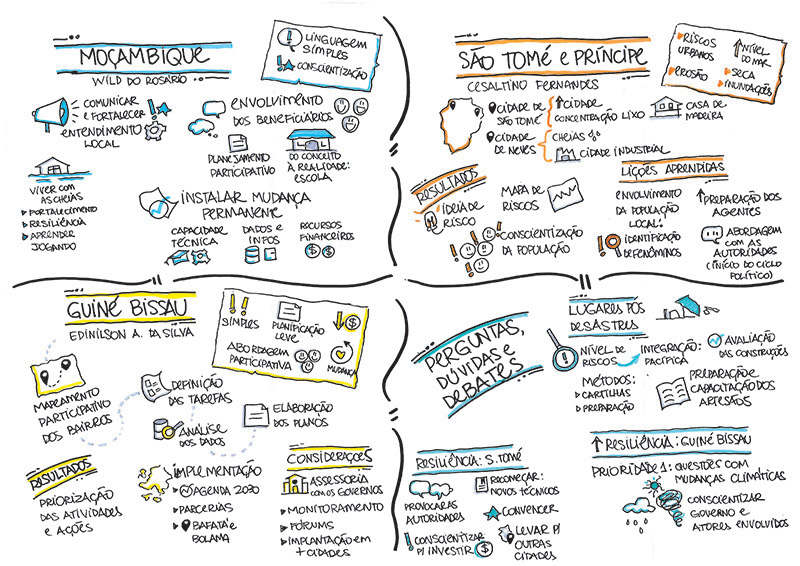 MOÇAMBIQUE
WILD DO ROSÁRIO
LINGUAGEM
SIMPLES
CONSCIENTIZAÇÃO
COMUNICAR
E FORTALECER
ENTENDIMENTO
LOCAL
ENVOLVIMENTO
DOS BENEFICIÁRIOS
PLANEJAMENTO
PARTICIPATIVO
DO CONCEITO
À REALIDADE:
ESCOLA
VIVER COM
AS CHEIAS
PORTALECIMENTO
RESILIÊNCIA
APRENDER
JOGANDO
INSTALAR MUDANÇA
PERMANENTE
CAPACIDADE
TÉCNICA
DADOS E
INFOS
RECURSOS
FINANCEIROS
SÃO TOMÉ E PRÍNCIPE
CESALTINO FERNANDES
RISCOS
URBANOS
NÍVEL
DO MAR
EROSÃO
SECA
INUNDAÇÕES
CIDADE DE
SÃO TOMÉ
CIDADE
CONCENTRAÇÃO LIXO
CASA DE
MADEIRA
CIDADE
DE NEVES
CHEIAS
CIDADE INDUSTRIAL
RESULTADOS
IDEIA DE
RISCO
MAPA DE
RISCOS
CONSCIENTIZAÇÃO
DA POPULAÇÃO
LIÇÕES APRENDIDAS
ENVOLVIMENTO
DA POPULAÇÃO
LOCAL:
IDENTIFICAÇÃO
DE FENÔMINOS
PREPARAÇÃO DOS
AGENTES
ABORDAGEM
COM AS
AUTORIDADES
(INÍCIO DO CICLO
POLÍTICO)
GUINÉ BISSAU
EDINILSON A. DA SILVA
SIMPLES
PLANIFICAÇÃO
LEVE
$
ABORDAGEM
PARTICIPATIVA
MUDANÇA
MAPEAMENTO
PARTICIPATIVO
DOS BAIRROS
DEFINIÇÃO
DAS TAREFAS
ANÁLISE
DOS DADOS
ELABORAÇÃO
DOS PLANOS
RESULTADOS
PRIORIZAÇÃO
DAS ATIVIDADES
E AÇÕES
IMPLEMENTAÇÃO
AGENDA 2030
PARCERIAS
BAFATÁ E
BOLAMA
CONSIDERAÇÕES
ASSESSORIA
COM OS GOVERNOS
MONITORAMENTO
FÓRUMS
IMPLANTAÇÃO EM
+ CIDADES
PERGUNTAS,
DÚVIDAS E
DEBATES
LUGARES PÓS
DESASTRES
NÍVEL DE
RISCOS
INTEGRAÇÃO:
PACÍFICA
AVALIAÇÃO
DAS CONSTRUÇÕES
MÉTODOS:
CARTILHAS
PREPARAÇÃO
PREPARAÇÃO E
CAPACITAÇÃO DOS
ARTESÃOS
RESILIÊNCIA: S. TOMÉ
PROVOCAR AS
AUTORIDADES
RECOMEÇAR:
NOVOS TÉCNICOS
CONVENCER
CONSCIENTIZAR
P/ INVESTIR
$
LEVAR P/
OUTRAS
CIDADES
RESILIÊNCIA: GUINÉ BISSAU
PRIORIDADE 1: QUESTÕES COM
MUDANÇAS CLIMÁTICAS
CONSCIENTIZAR
GOVERNO E
ATORES ENVOLVIDOS